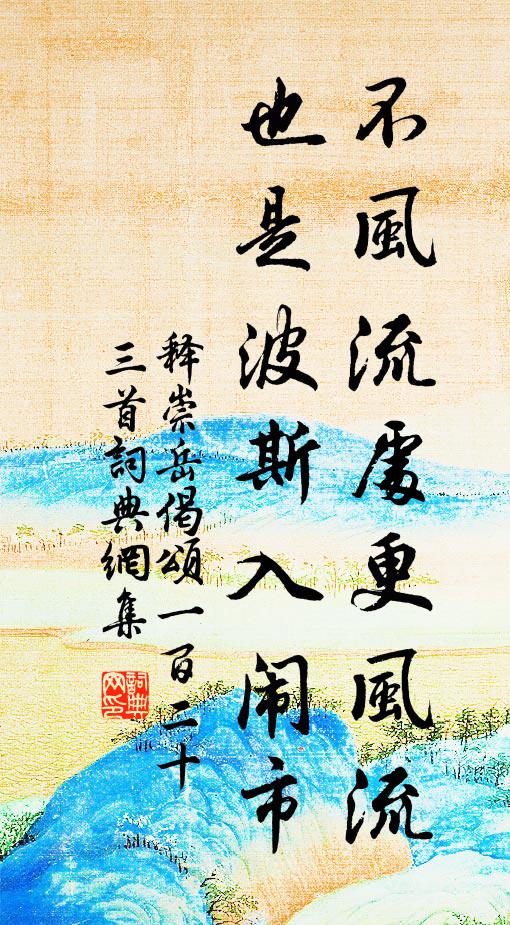 不風流處更風流
也是波斯入闹市
释崇岳偈頌一百二十
三首詞典網集
詞典網印